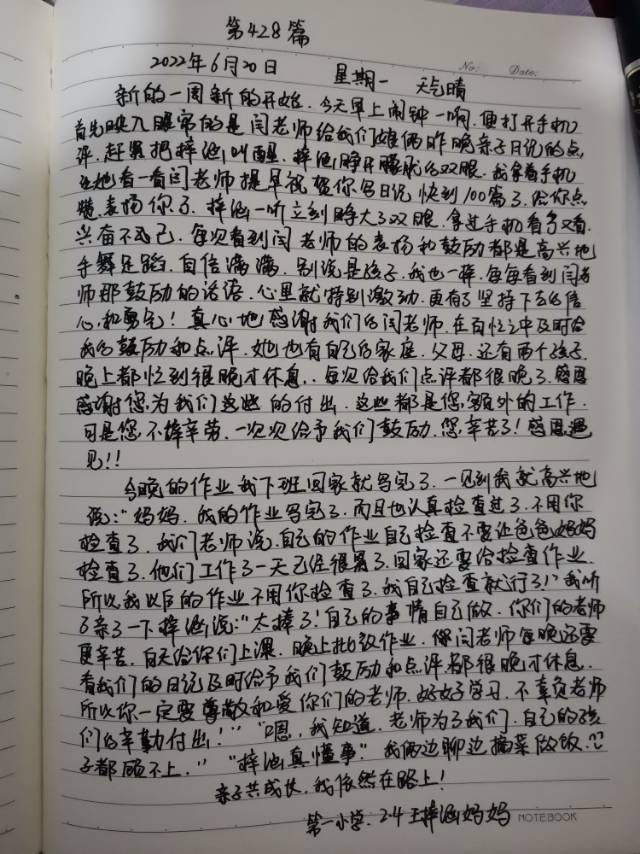 第428篇
No: Date:
2022年6月20日 星期一 天气晴
新的一周新的开始。今天早上闹钟一响，便打开手机
首先映入眼帘的是闫老师给我们娘俩昨晚亲子日记的点
评。赶紧把梓涵叫醒，梓涵睁开朦胧的双眼，我拿着手机
让她看一看闫老师提早祝贺你写日记快到100篇了，给你点
赞，表扬你了。梓涵一听立刻睁大了双眼，拿过手机看了又看，
兴奋不已。每次看到闫老师的表扬和鼓励都是高兴地
手舞足蹈，自信满满，别说是孩子，我也一样，每每看到闫老
师那鼓励的话语，心里就特别激动，更有了坚持下去的信
心和勇气！真心地感谢我们的闫老师，在百忙之中及时给
我们鼓励和点评，她也有自己的家庭，父母，还有两个孩子，
晚上都忙到很晚才休息，每次给我们点评都很晚了，感恩
感谢您，为我们这些的付出，这些都是您额外的工作，
可是您不惮辛劳，一次次给予我们鼓励，您辛苦了！感恩遇
见！！
今晚的作业我下班回家就写完了，一见到我就高兴地
说：“妈妈，我的作业写完了，而且也认真检查过了，不用你
检查了，我们老师说，自己的作业自己检查不要让爸爸妈妈
检查了，他们工作了一天已经很累了，回家还要给检查作业，
所以我以后的作业不用你检查了，我自己检查就行了！”我听
了亲了一下梓涵说：“太棒了！自己的事情自己做，你们的老师
更辛苦，白天给你们上课，晚上批改作业，像闫老师每晚还要
看我们的日记及时给予我们鼓励和点评都很晚才休息，
所以你一定要尊敬和爱你们的老师，好好学习，不辜负老师
们的辛勤付出！”“嗯，我知道，老师为了我们，自己的孩
子都顾不上。”“梓涵真懂事”我俩边聊边摘菜做饭。
亲子共成长，我依然在路上！
第一小学，2.4 王梓涵妈妈
NOTEBOOK